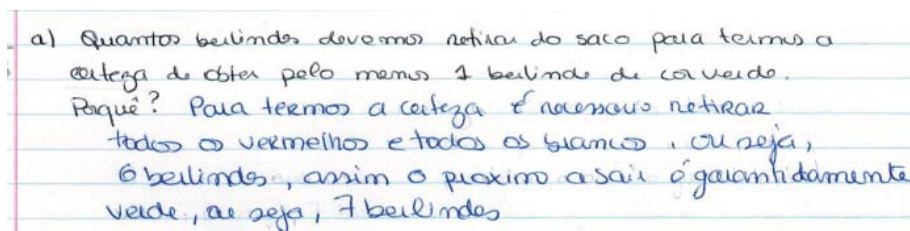 a) Quantos berlindes devemos retirar do saco para termos a
certeza de obter pelo menos 1 berlinde de cor verde.
Porquê? Para termos a certeza é necessario retirar
todos os vermelhos e todos os branco, ou seja,
6 berlindes, assim o proximo a sair é garantidamente
verde, ou seja, 7 berlindes